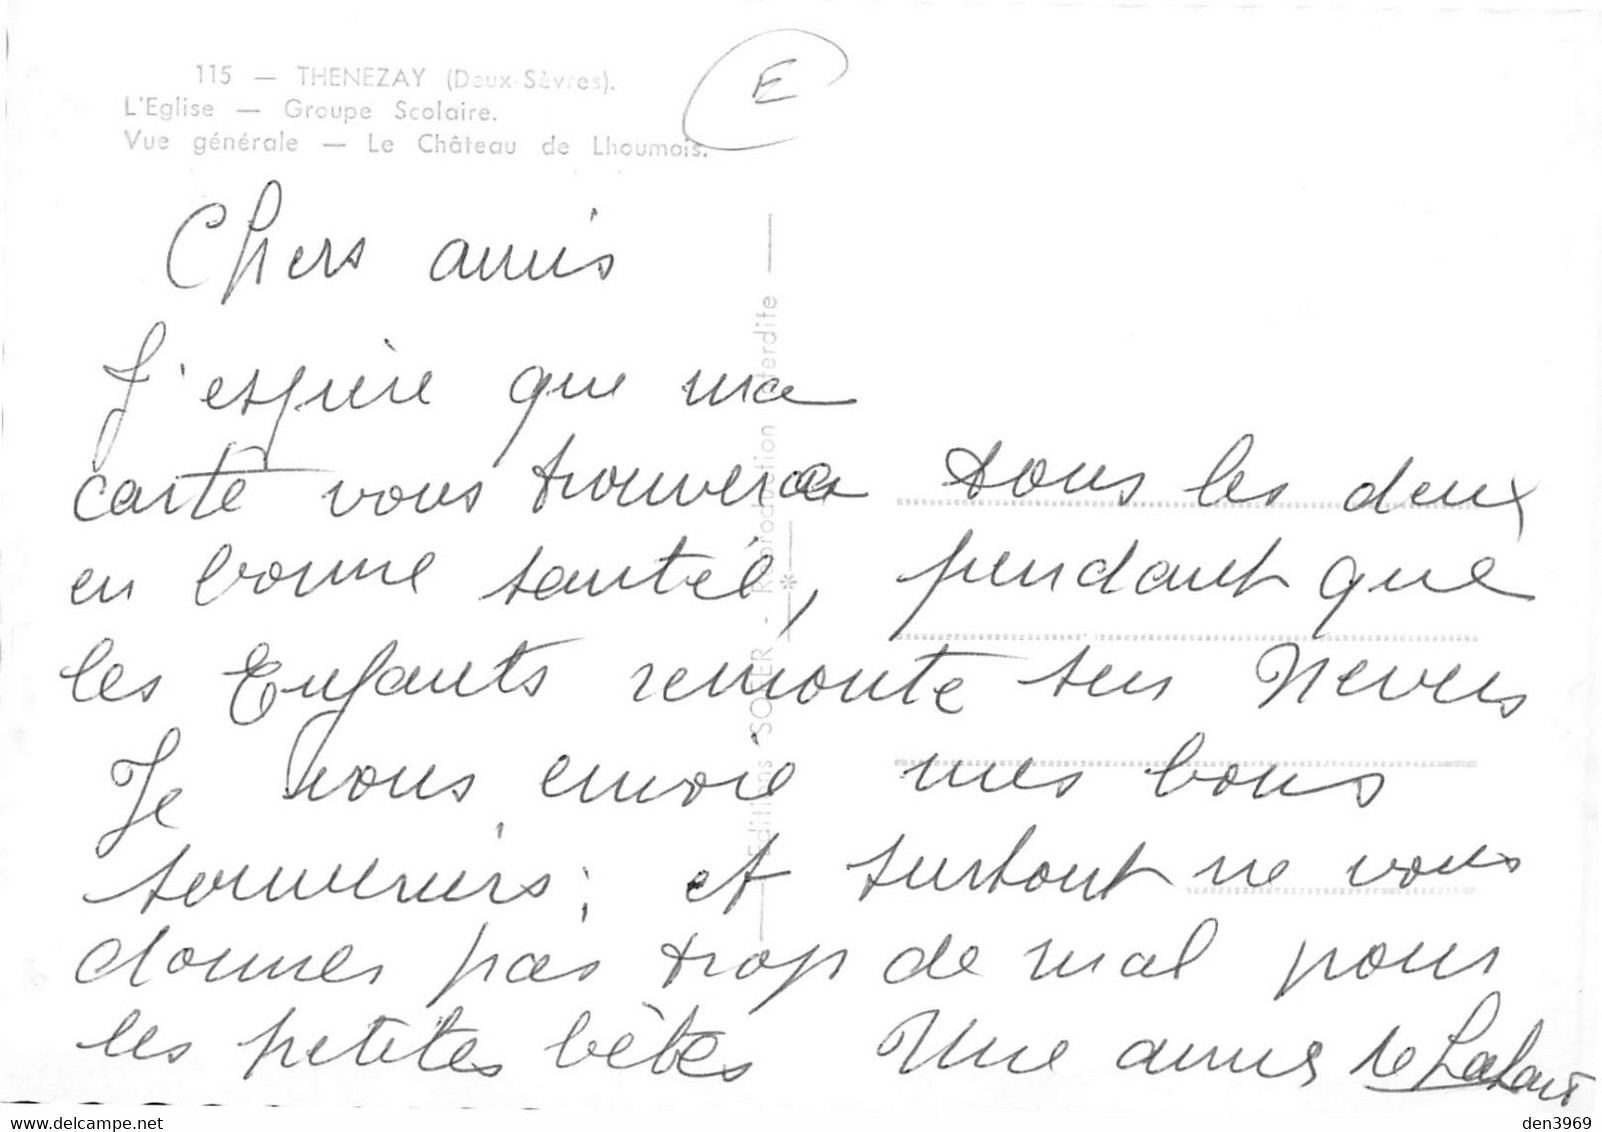 115 — THENEZAY (Deux-Sèvres).
L'Eglise — Groupe Scolaire.
Vue générale — Le Château de Lhoumois.
E
Chers amis
J'espère que ma
carte vous trouveras tous les deux
en bonne santé, pendant que
les Enfants remonte sur Nevers
Je vous envoie mes bons
souvenirs; et surtout ne vous
donner pas trop de mal pour
les petites bêtes Une amie
Editions SOFER - Reproduction interdite
www.delcampe.net
den3969